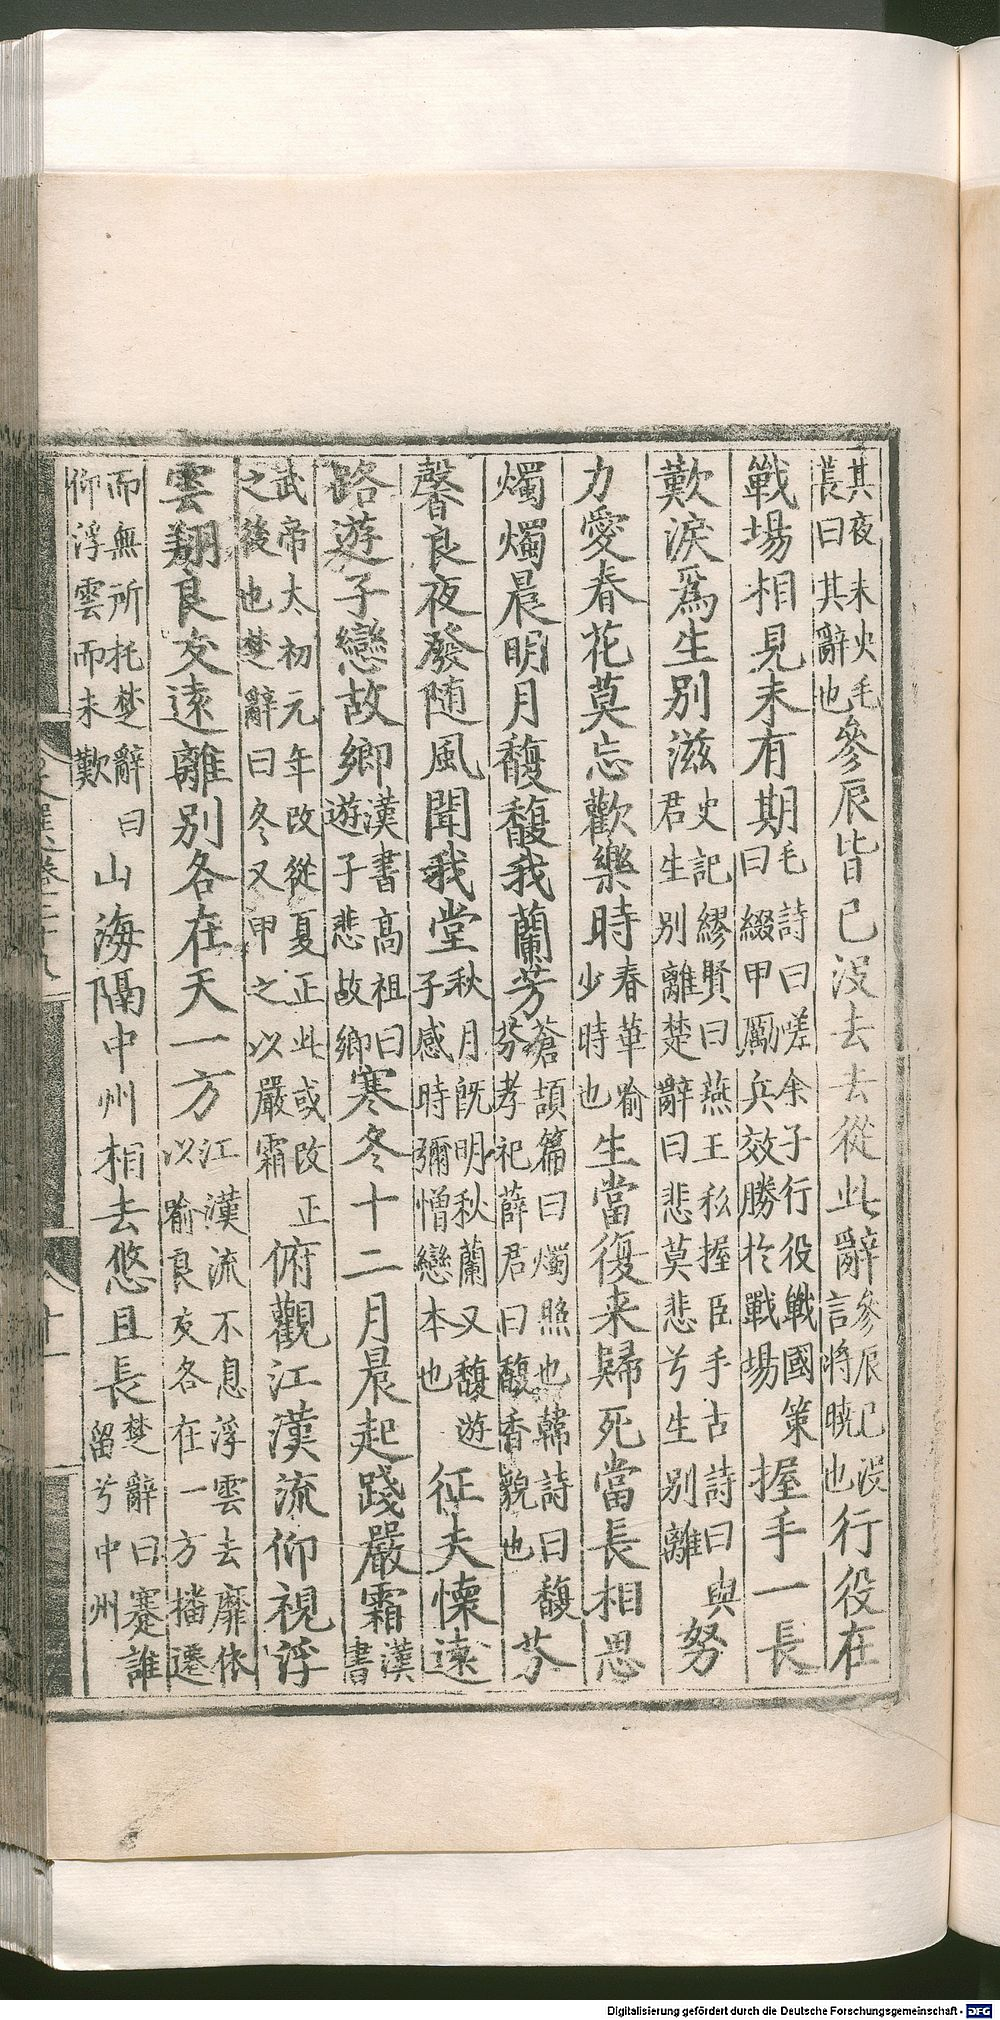 其夜未央毛萇曰其辭也參辰皆已没去去從此辭參辰已没言將曉也行役在
戰場相見未有期毛詩曰嗟余子行役戰國策曰綴甲厲兵效勝於戰場握手一長
歎淚爲生别滋史記繆賢曰燕王私握臣手古詩曰與君生别離楚辭曰悲莫悲兮生别離努
力愛春花莫忘歡樂時春華喻少時也生當復来歸死當長相思
燭燭晨明月馥馥我蘭芳蒼頡篇曰燭照也韓詩曰馥芬孝祀薛君曰馥香貌也芬
馨良夜發随風聞我堂秋月既明秋蘭又馥遊子感時彌憎戀本也征夫懐遠
路遊子戀故鄉漢書高祖曰遊子悲故鄉寒冬十二月晨起踐嚴霜漢書
武帝太初元年改從夏正此或改正之後也楚辭曰冬又甲之以嚴霜俯觀江漢流仰視浮
雲翔良友遠離别各在天一方江漢流不息浮雲去靡依以喻良友各在一方播遷
而無所托楚辭曰仰浮雲而未歎山海隔中州相去悠且長楚辭曰蹇誰留兮中州
Digitalisierung gefördert durch die Deutsche Forschungsgemeinschaft - DFG